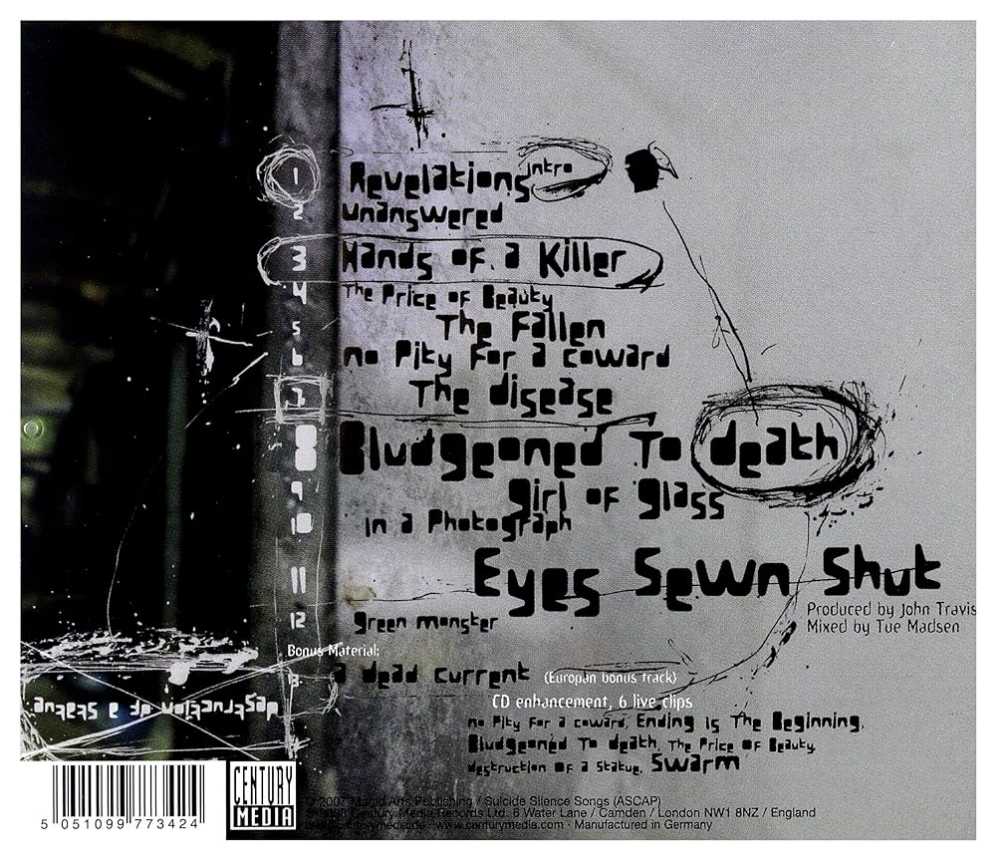 1 Revelations intro
2 unanswered
3 Hands of a Killer
4 The Price of Beauty
5 The Fallen
6 no Pity for a coward
7 The disease
8 Bludgeoned To death
9 girl of glass
10 in a Photograph
11 Eyes Sewn Shut
12 green monster
Produced by John Travis
Mixed by Tue Madsen
Bonus Material:
13 a dead current (Europan bonus track)
CD enhancement, 6 live clips
no Pity for a coward, Ending is The Beginning,
Bludgeoned To death, The Price of Beauty,
destruction of a statue, Swarm
destruction of a statue
5 051099 773424
CENTURY
MEDIA
2007 Arts Publishing / Suicide Silence Songs (ASCAP)
Century Media Records Ltd. 6 Water Lane / Camden / London NW1 8NZ / England
www.centurymedia.com - Manufactured in Germany